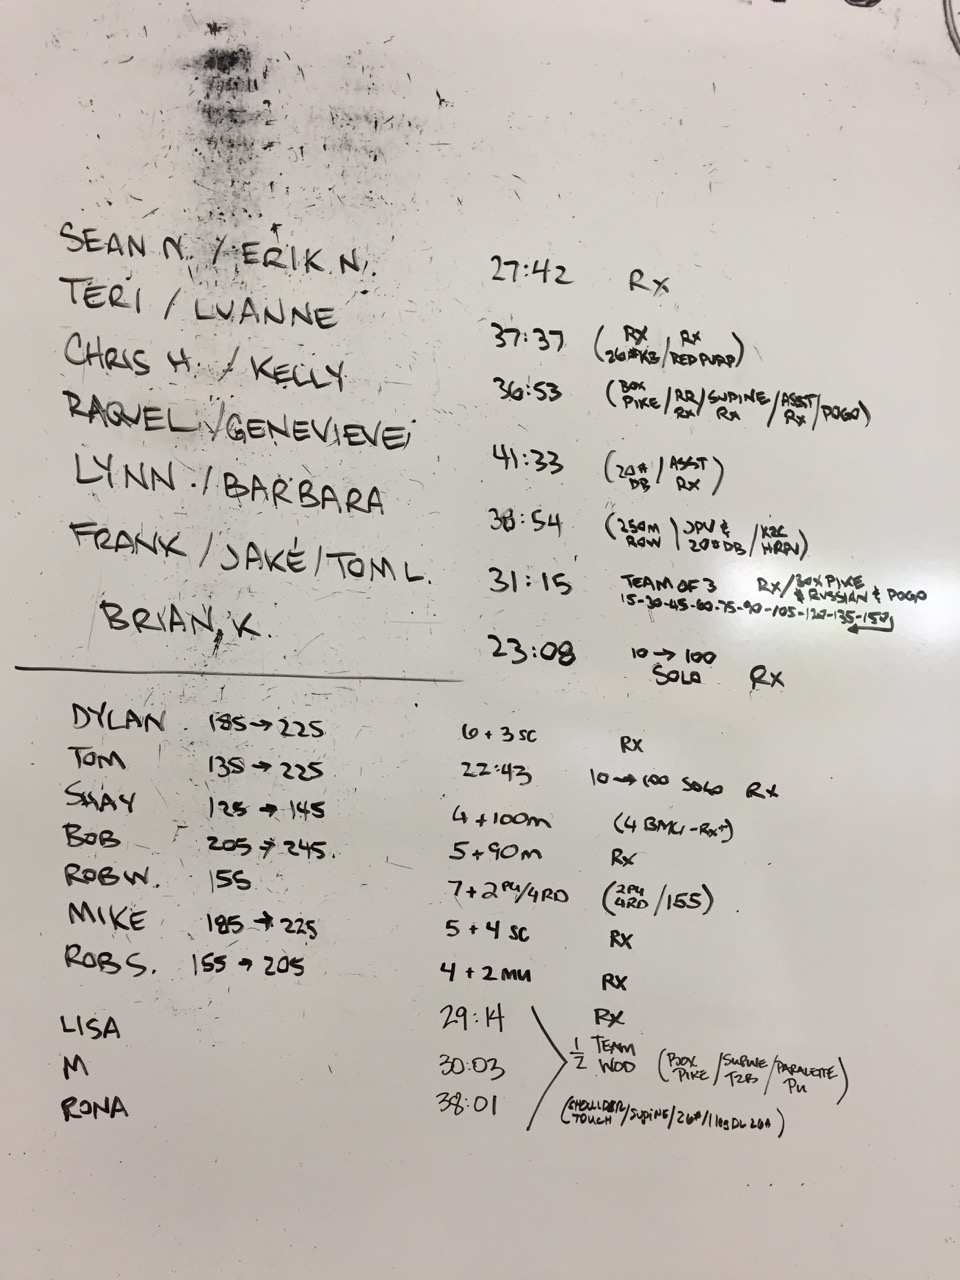 SEAN N. / ERIK N. 27:42 Rx
TERI / LUANNE 37:37 (RX 26#KB / RX RED PURP)
CHRIS H. / KELLY 36:53 (BOX PIKE / RR RX / SUPINE RX / ASST RX / POGO)
RAQUEL / GENEVIEVE 41:33 (20# DB / ASST RX)
LYNN / BARBARA 38:54 (250M ROW / & 20#DB /
FRANK / JAKE / TOM L. 31:15 TEAM OF 3 RX / BOX PIKE & RUSSIAN & POGO
15-30-45-60-75-90-105-120-135-150
BRIAN K. 23:08 10 → 100 SOLO Rx
DYLAN 185 → 225 6 + 3 SC RX
TOM 135 → 225 22:43 10 → 100 SOLO Rx
SHAY 125 → 145 4 + 100m (4 BMU - Rx+)
BOB 205 → 245. 5 + 90m Rx
ROB W. 155 7 + 2 PU/4RD (2PU 4RD / 155)
MIKE 185 → 225 5 + 4 SC RX
ROB S. 155 → 205 4 + 2 MU RX
LISA 29:14 RX
M 30:03 1/2 TEAM WOD (BOX PIKE / SUPINE T2B / PARALETTE PU)
RONA 38:01 (SHOULDER TOUCH / SUPINE / 26# / 1 leg DL 26#)